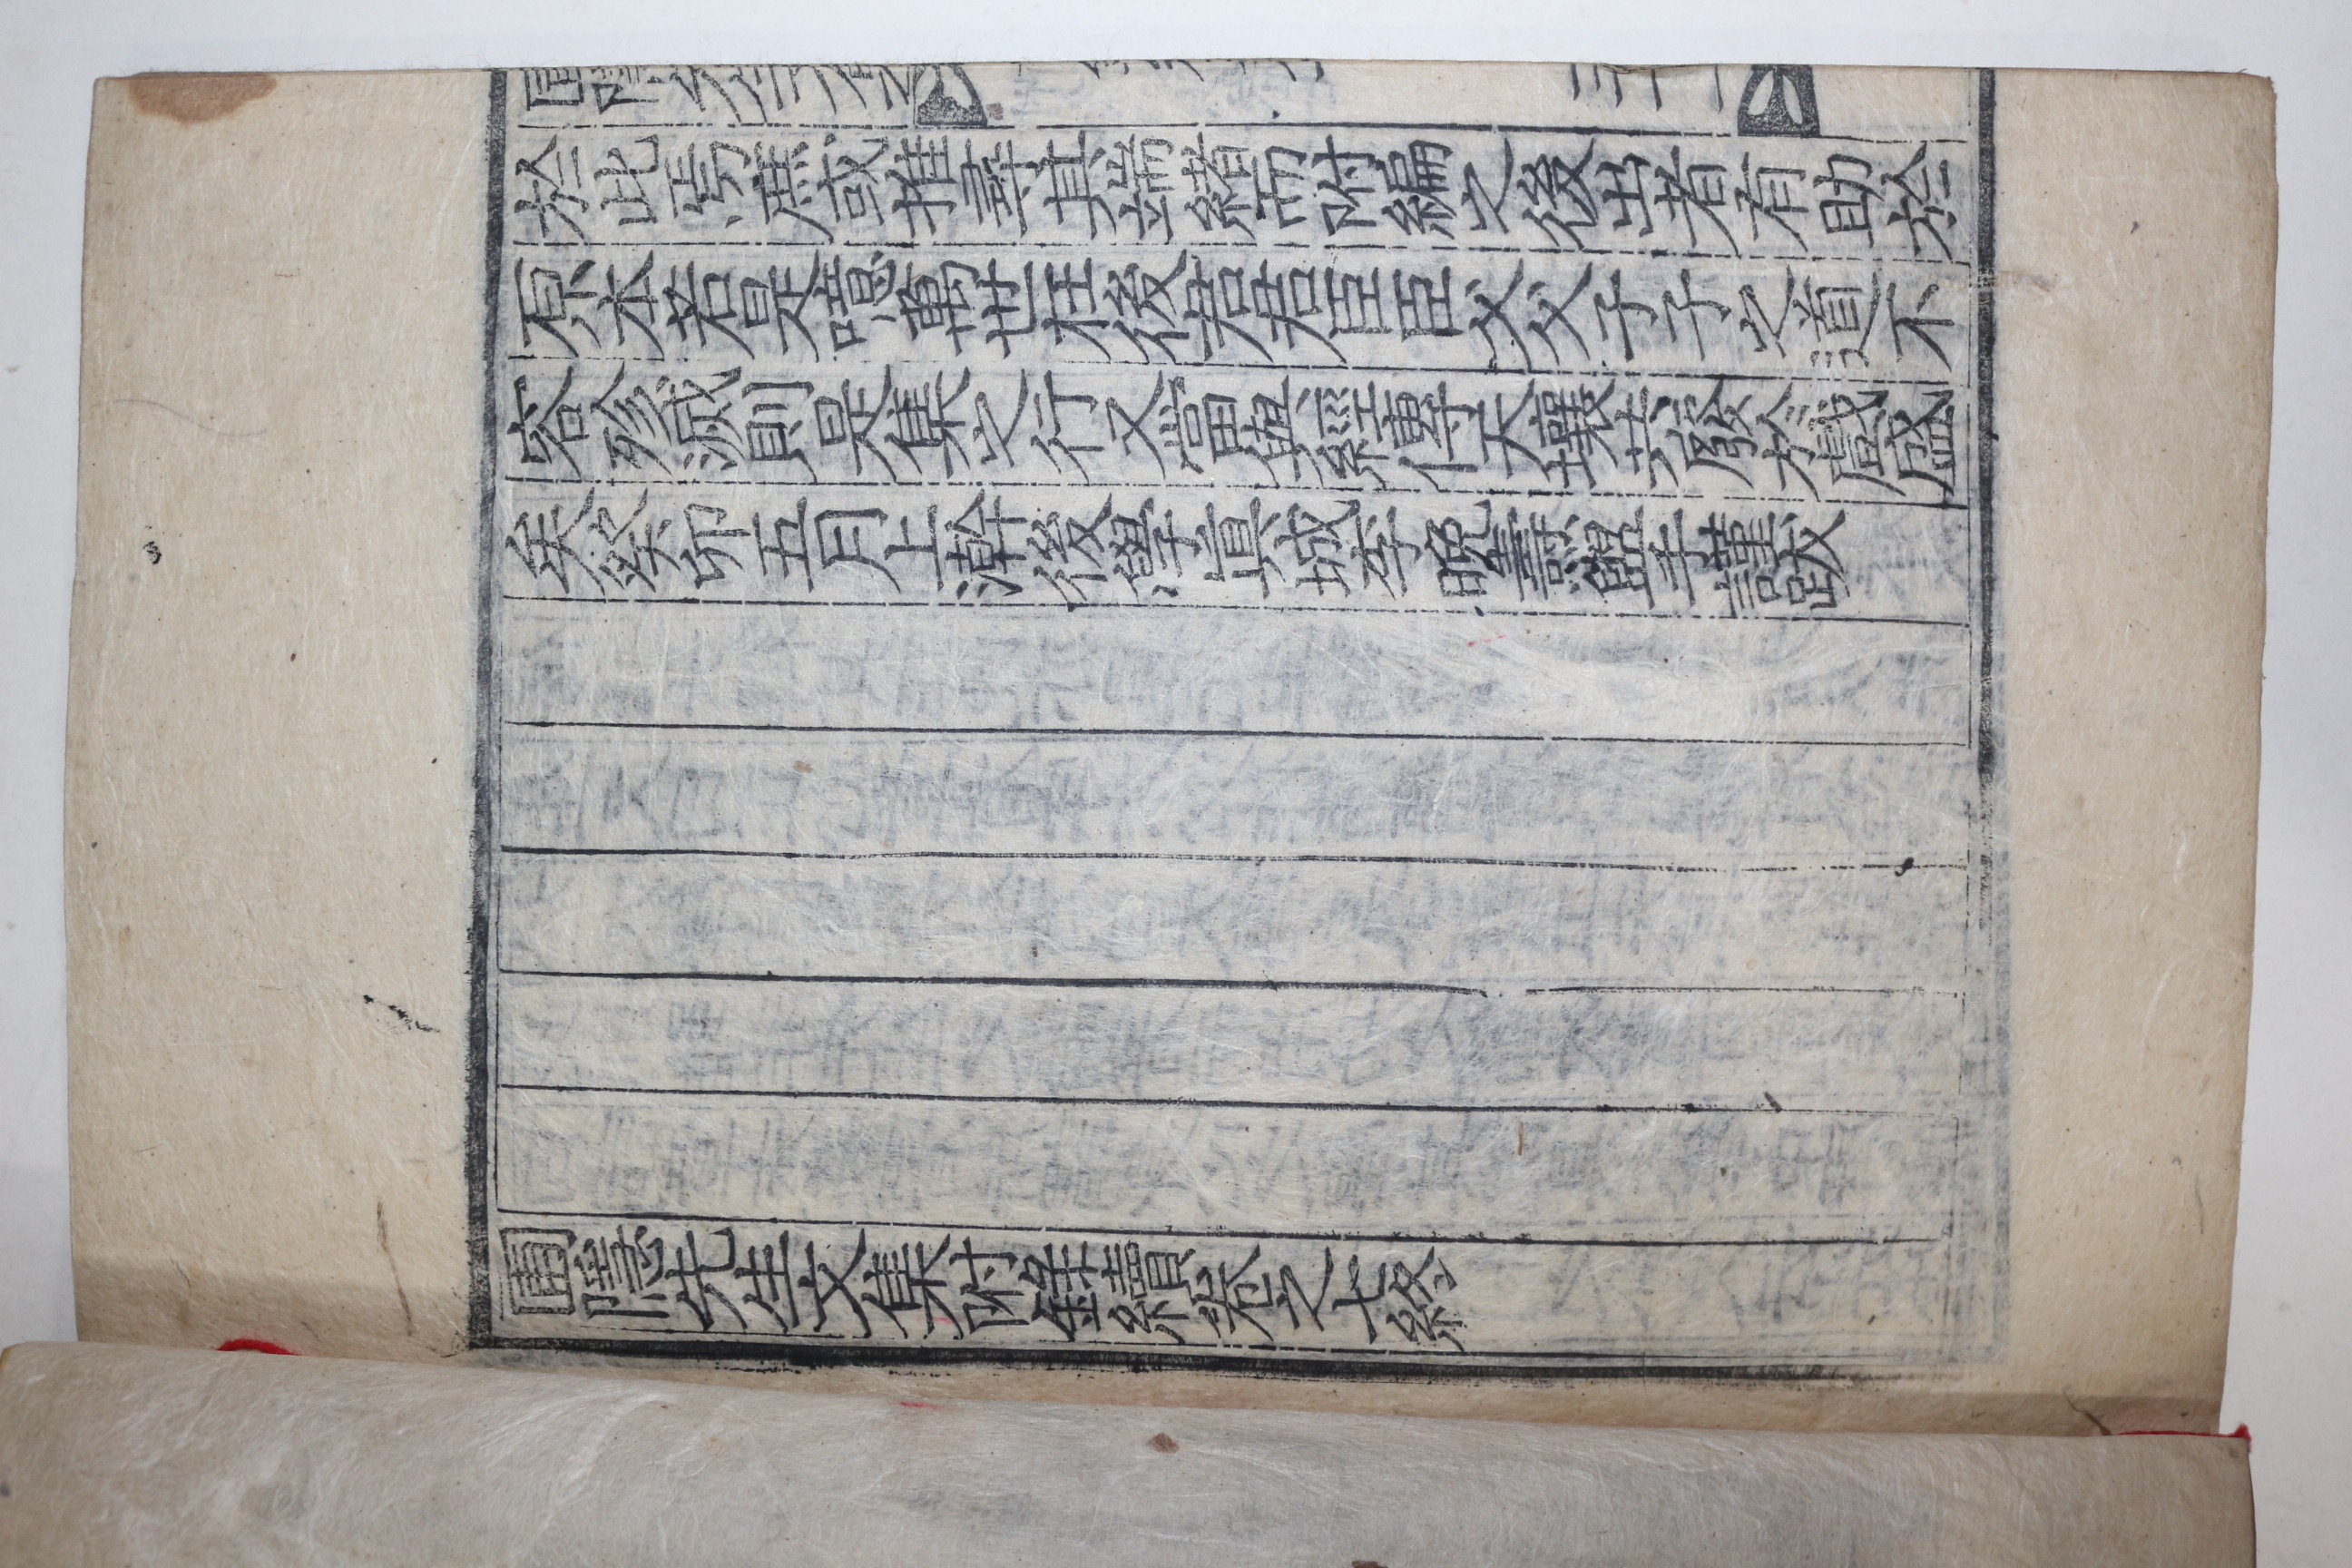 於此焉庶或推尋其端緖而附編之後出者有助於
原本若是噫萬世在後君君臣臣父父子子之道不
容殄滅則是集之行又當與經傳天壤共廢於戲盛
矣癸卯五月上澣後學眞城李晩燾盥手謹跋
圃隱先生文集附錄續卷之七終